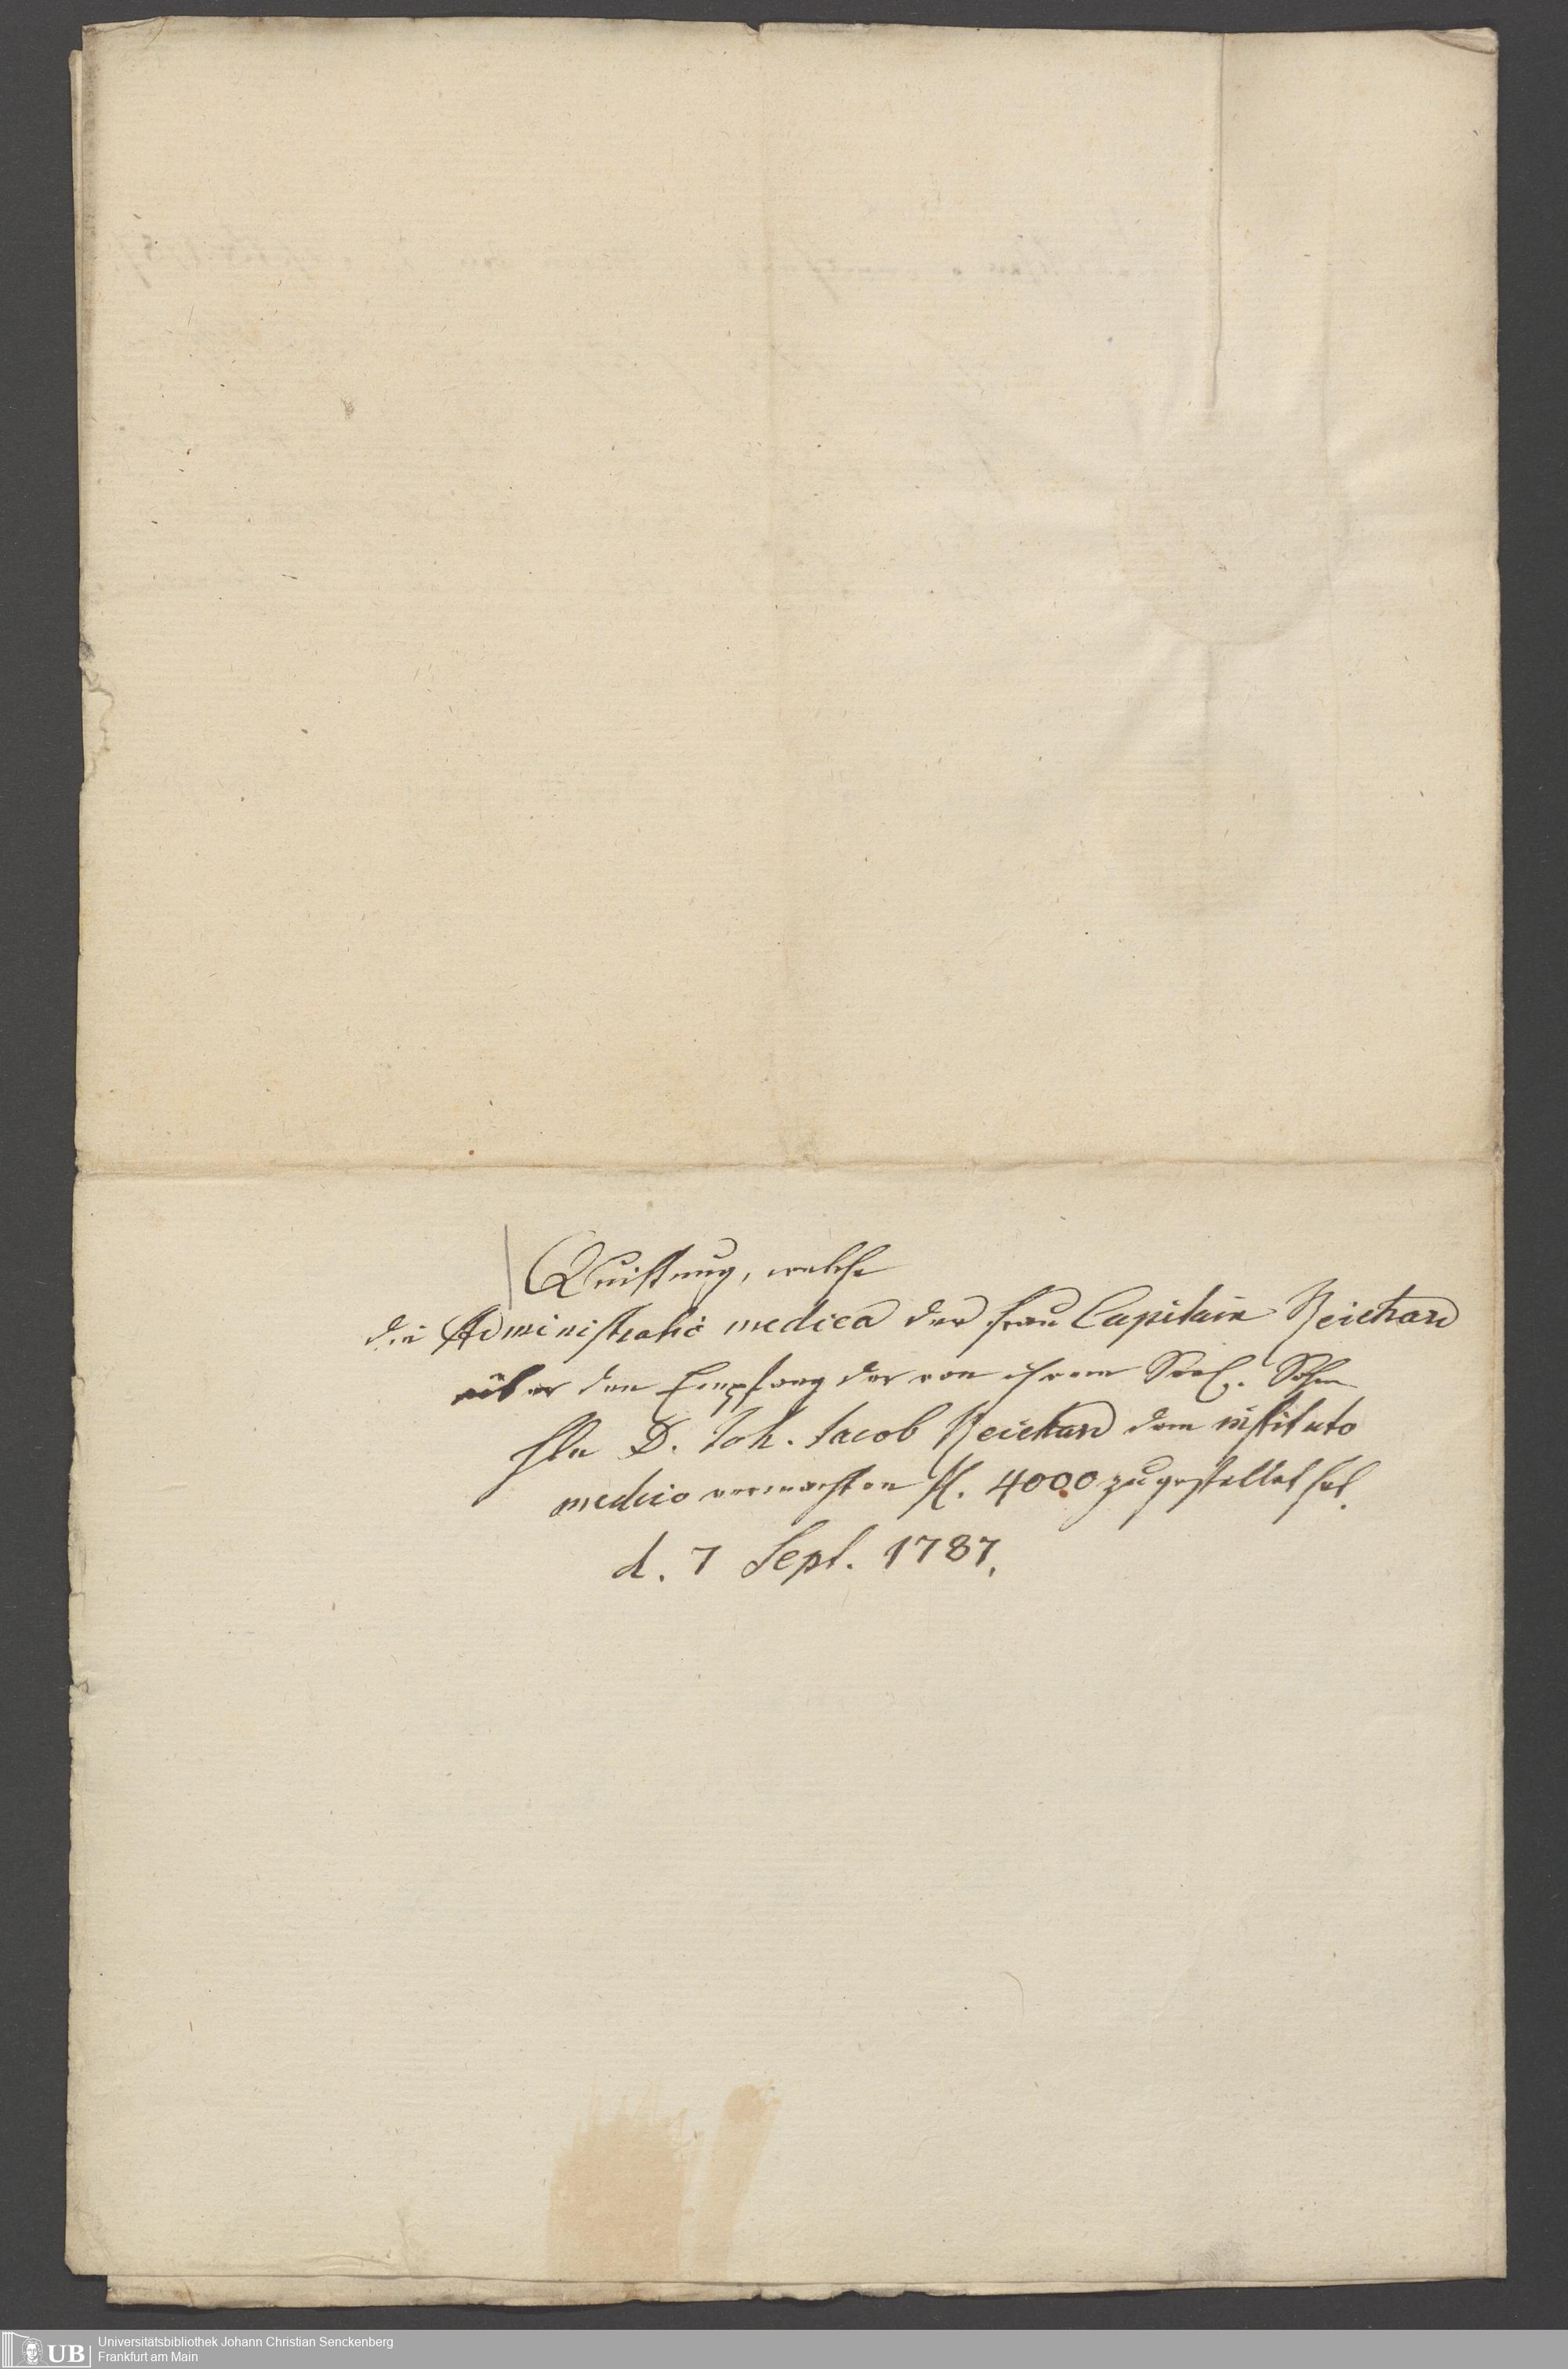 Quittung, welche
die Administratio medica der Frau Capitain Reichard
über den Empfang der von ihrem Seel. Sohn
Hln D. Joh. Jacob Reichard dem instituto
medico vermachten fl. 4000 zugestellet hat.
d. 7 Sept. 1787.
UB
Universitätsbibliothek Johann Christian Senckenberg
Frankfurt am Main